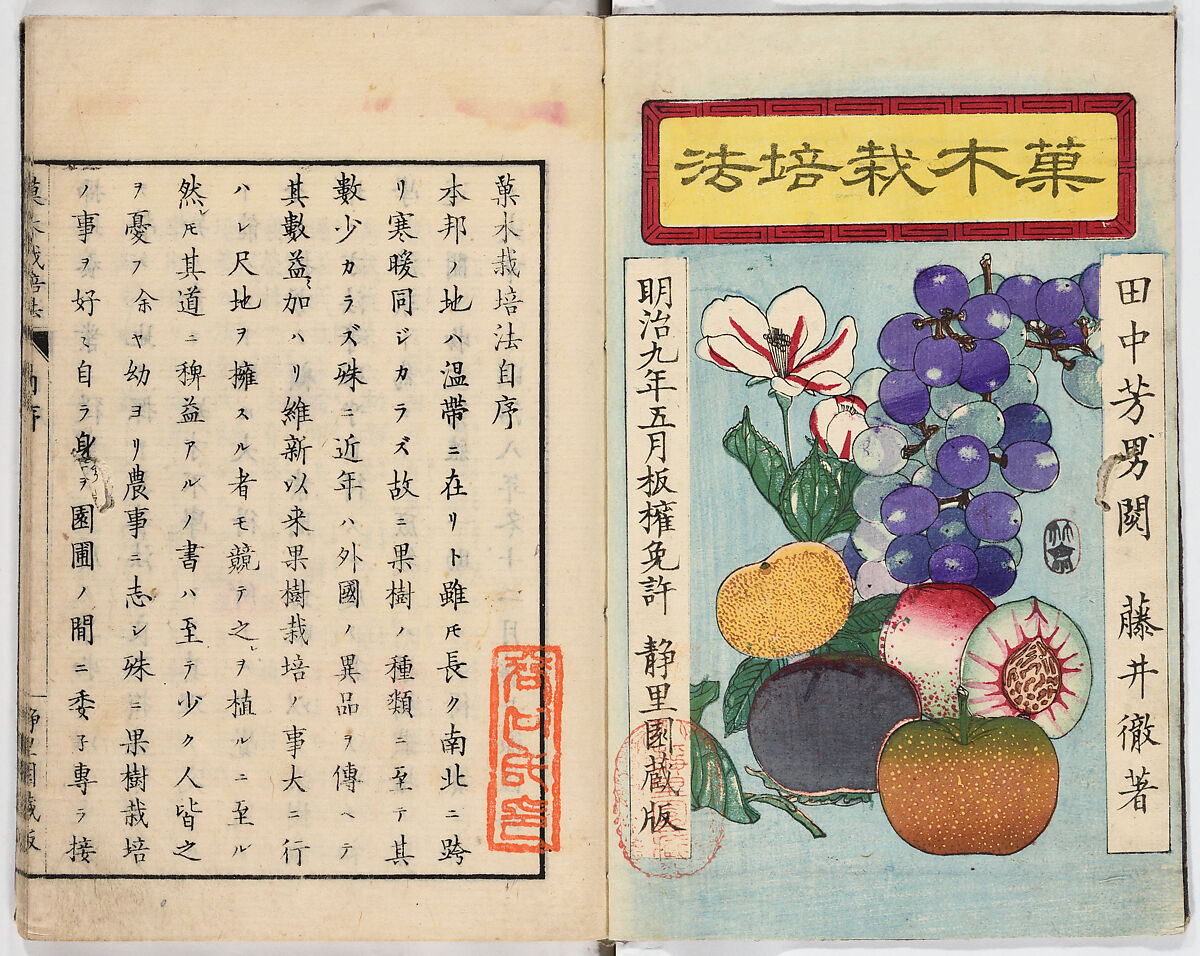 菓木栽培法
田中芳男閲 藤井徹著
明治九年五月板権免許 静里園蔵版
菓木栽培法自序
本邦ノ地ハ温帶ニ在リト雖𪜈長ク南北ニ跨
リ寒暖同ジカラズ故ニ果樹ノ種類ニ至テ其
數少カラズ殊ニ近年ハ外國ノ異品ヲ傳ヘテ
其數益加ハリ維新以来果樹栽培ノ事大ニ行
ハレ尺地ヲ擁スル者モ競テ之ヲ植ルニ至ル
然レ𪜈其道ニ稗益アルノ書ハ至テ少ク人皆之
ヲ憂フ余ヤ幼ヨリ農事ニ志シ殊ニ果樹栽培
ノ事ヲ好ミ自ラ身ヲ園圃ノ間ニ委子專ラ接
静里園蔵版